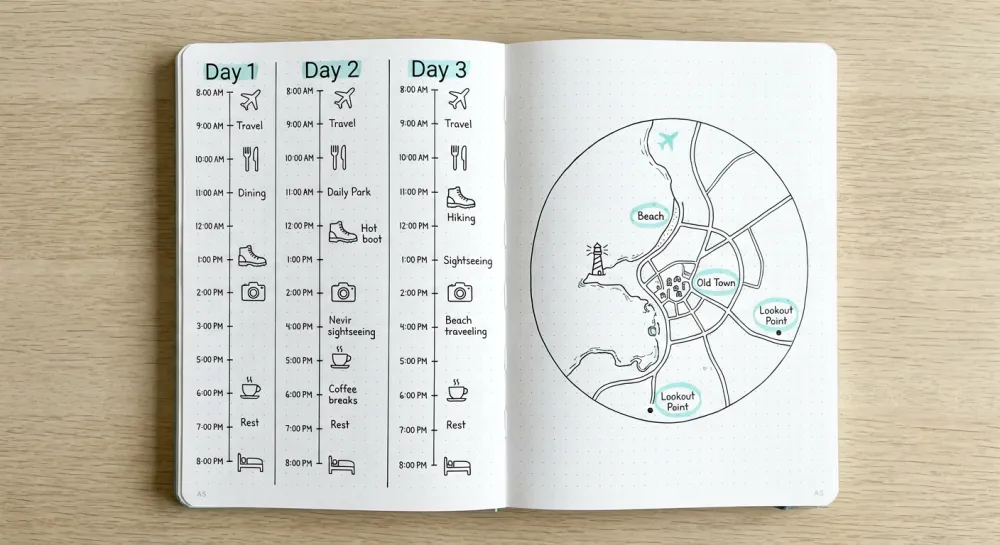 Day 1
8:00 AM
9:00 AM
Travel
10:00 AM
11:00 AM
Dining
12:00 AM
1:00 PM
2:00 PM
3:00 PM
5:00 PM
6:00 PM
7:00 PM
Rest
8:00 PM
Day 2
8:00 AM
9:00 AM
Travel
10:00 AM
11:00 AM
Daily Park
12:00 PM
Hot
boot
1:00 PM
2:00 PM
4:00 PM
Nevir
sightseeing
5:00 PM
6:00 PM
Coffee
breaks
7:00 PM
Rest
8:00 PM
Day 3
8:00 AM
9:00 AM
Travel
10:00 AM
11:00 PM
Hiking
12:00 PM
1:00 PM
Sightseeing
2:00 PM
4:00 PM
Beach
traveeling
5:00 PM
6:00 PM
7:00 PM
Rest
8:00 PM
A5
Beach
Old Town
Lookout
Point
Lookout
Point
A5